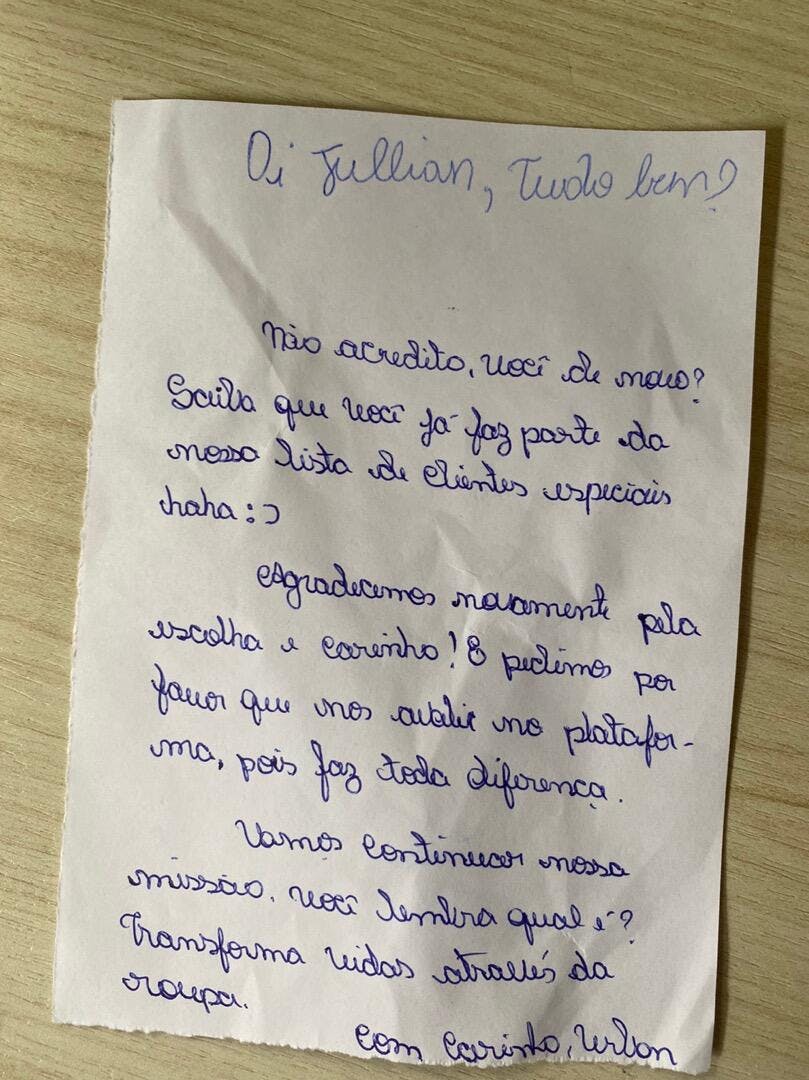 Oi Jullian, Tudo bem?
Não acredito, você de novo?
Saiba que você já faz parte da
nossa lista de clientes especiais
haha :)
Agradecemos novamente pela
escolha e carinho! E pedimos por
favor que nos avalie na platafor-
ma, pois faz toda diferença.
Vamos continuar nossa
missão. Você lembra qual é?
Transforma vidas através da
roupa.
com carinho, Urban